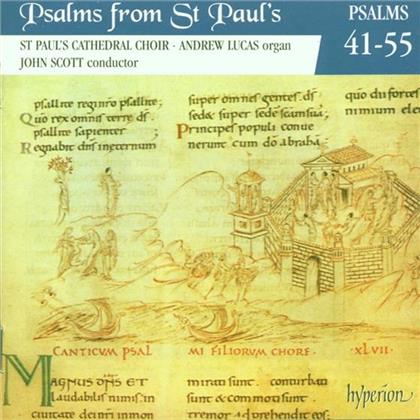 Psalms from St Paul's
ST PAUL'S CATHEDRAL CHOIR · ANDREW LUCAS organ
JOHN SCOTT conductor
PSALMS
41-55
psallite regi nro psallite;
Quo rex omnis terrę ds.
psallite sapienter
Regnabit dns in eternum
super omnes gentes. ds
sede& super sedē scam suā;
Principes populi conue
nerunt cum dō abrahā
quo du fortes
nimium
CANTICUM PSAL
MI FILIORUM CHORE · XLVII ·
MAGNUS DNS ET
laudabilis nimis. in
ciuitate dei nri. inmon
mirati sunt. conturbati
sunt & commoti sunt.
tremor adprehendit eos;
hyperion